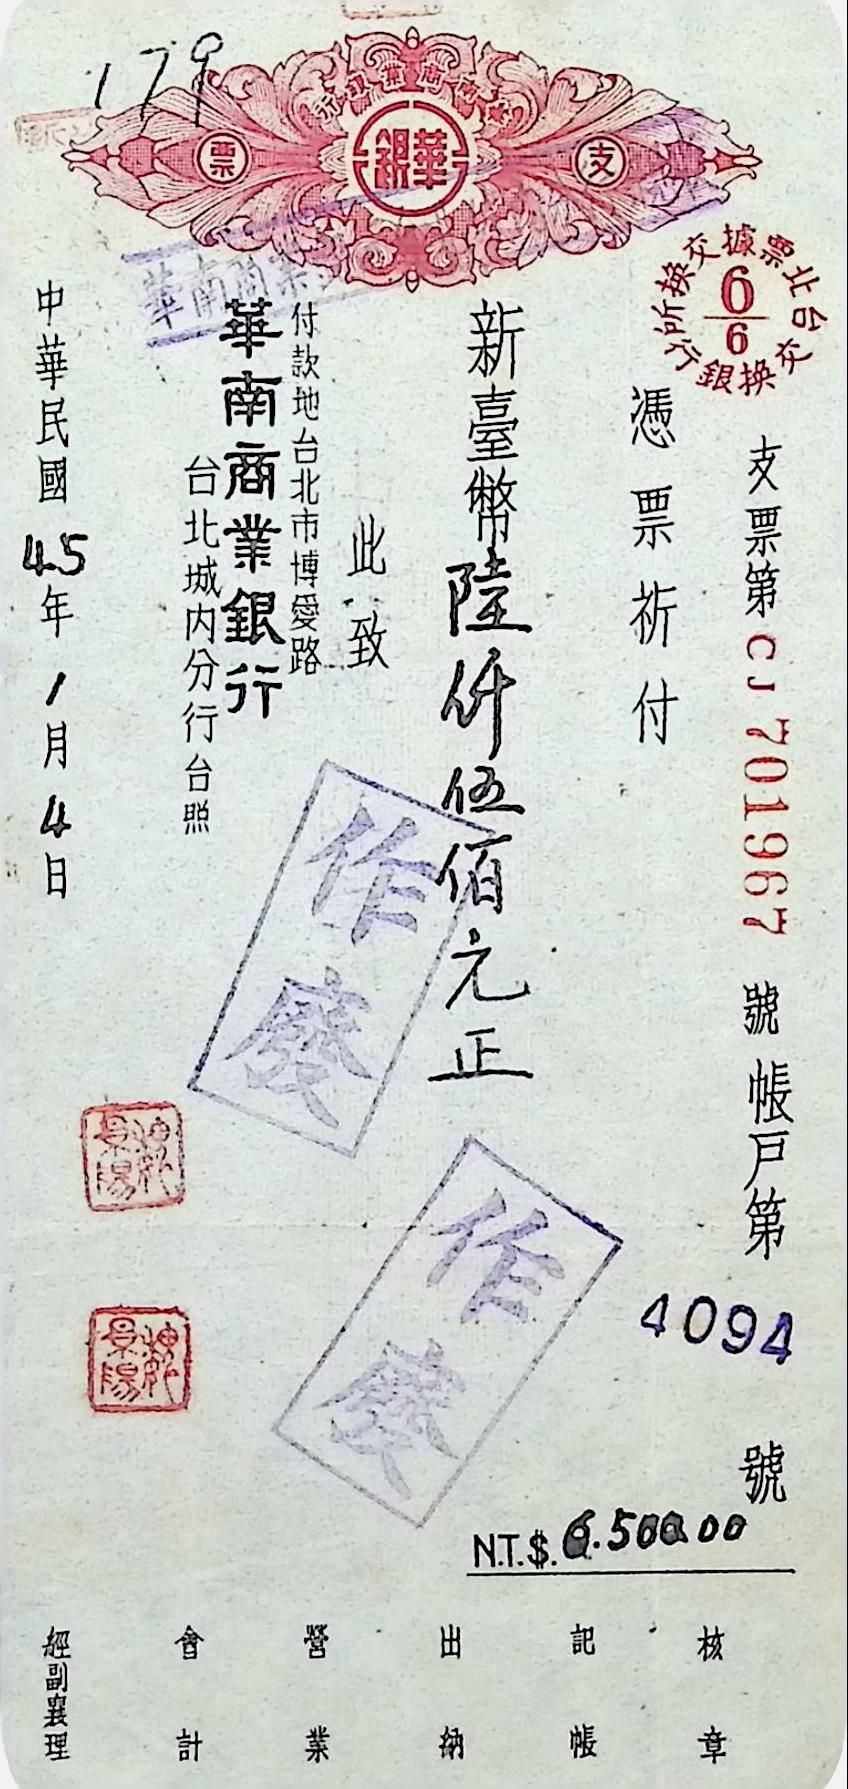 179
華南商業銀行
支票
華銀
台北票據交換所
6/6
交換銀行
支票第CJ701967號帳戶第4094號
憑票祈付
新臺幣陸仟伍佰元正
此致
付款地台北市博愛路
華南商業銀行
台北城內分行台照
中華民國45年1月4日
華南商業
作廢
作廢
N.T.$.6.500.00
核章
記帳
出納
營業
會計
經副襄理